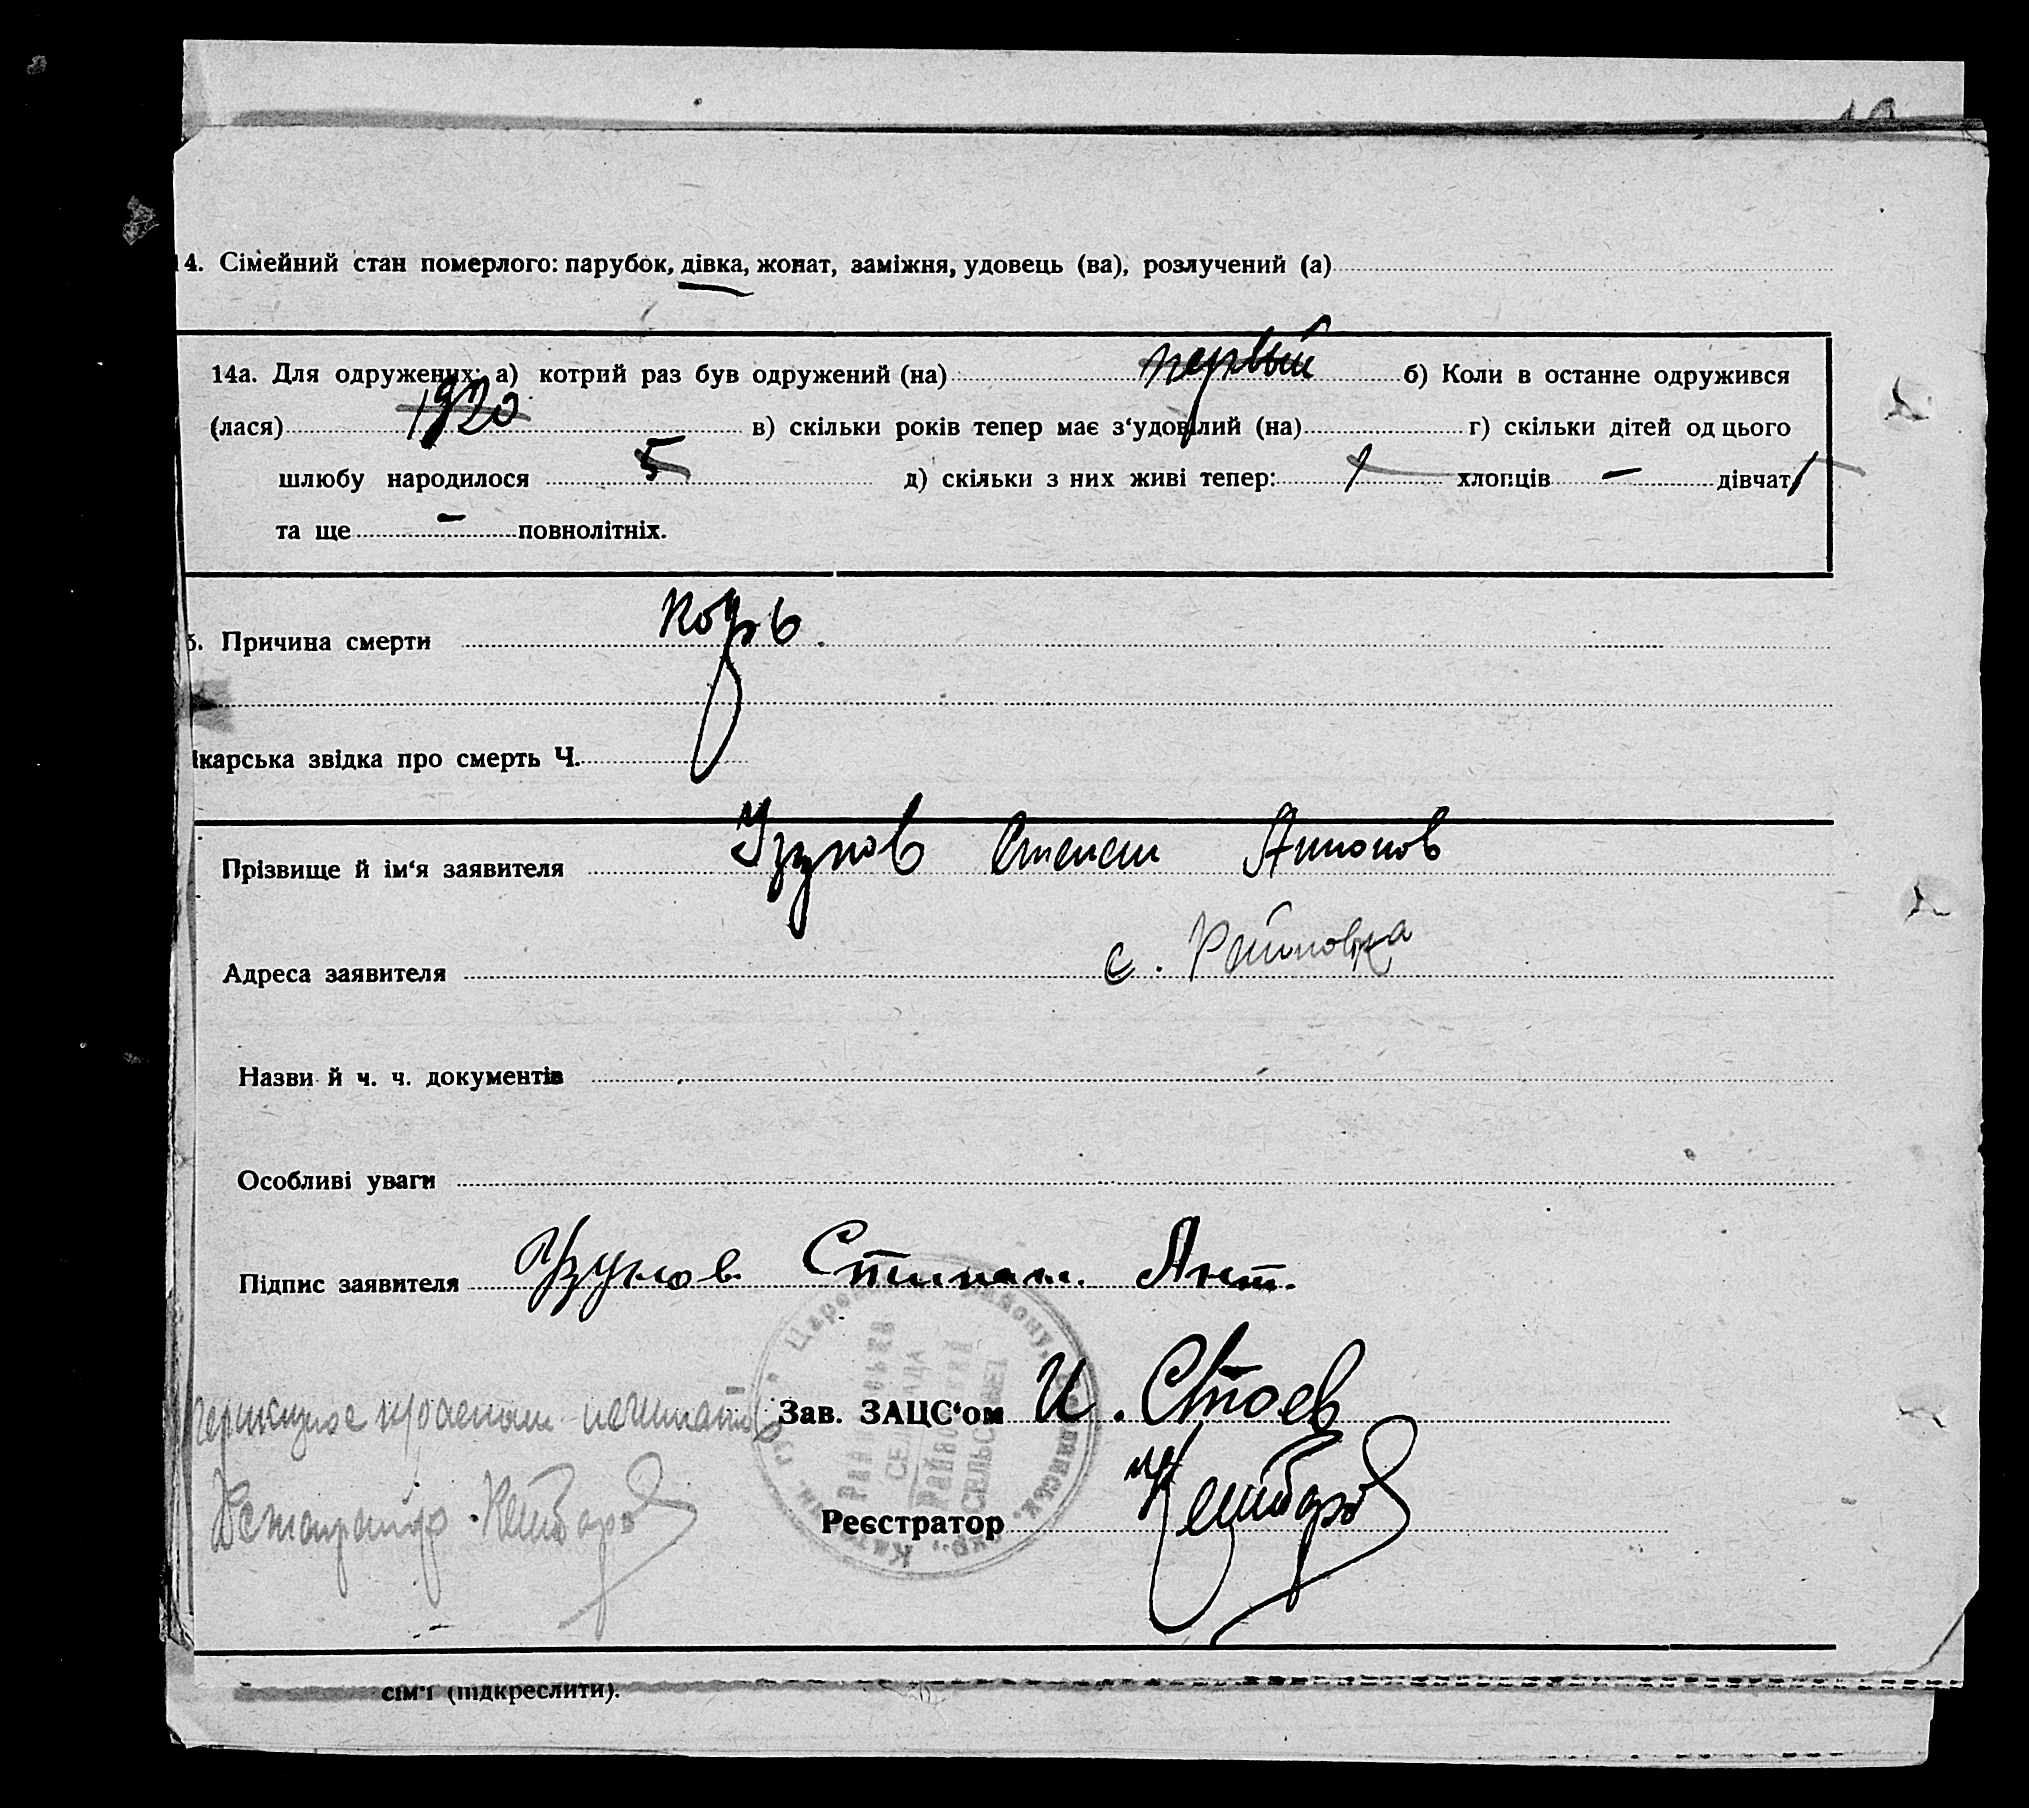 14. Сімейний стан померлого: парубок, дівка, жонат, заміжня, удовець (ва), розлучений (а)
14а. Для одружених: а) котрий раз був одружений (на) первый б) Коли в останне одружився
(лася) 1920 в) скільки років тепер має з‘удовілий (на) г) скільки дітей од цього
шлюбу народилося 5 д) скільки з них живі тепер: 1 хлопців – дівчат 1
та ще – повнолітніх.
Причина смерти корь.
ікарська звідка про смерть Ч.
Прізвище й ім‘я заявителя Узунов Степан Антонов
Адреса заявителя с. Райновка
Назви й ч. ч. документів
Особливі уваги
Підпис заявителя Узунов Стипан. Ант.
Зав. ЗАЦС‘ом И. Стоев
Реєстратор
сім‘ї (підкреслити).